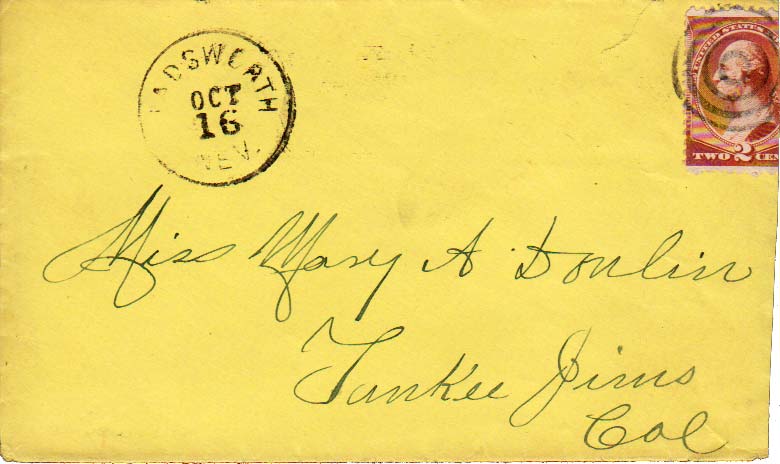 WADSWORTH
OCT
16
NEV.
UNITED STATES
TWO 2 CEN
Miss Mary A Donlin
Yankee Jims
Cal